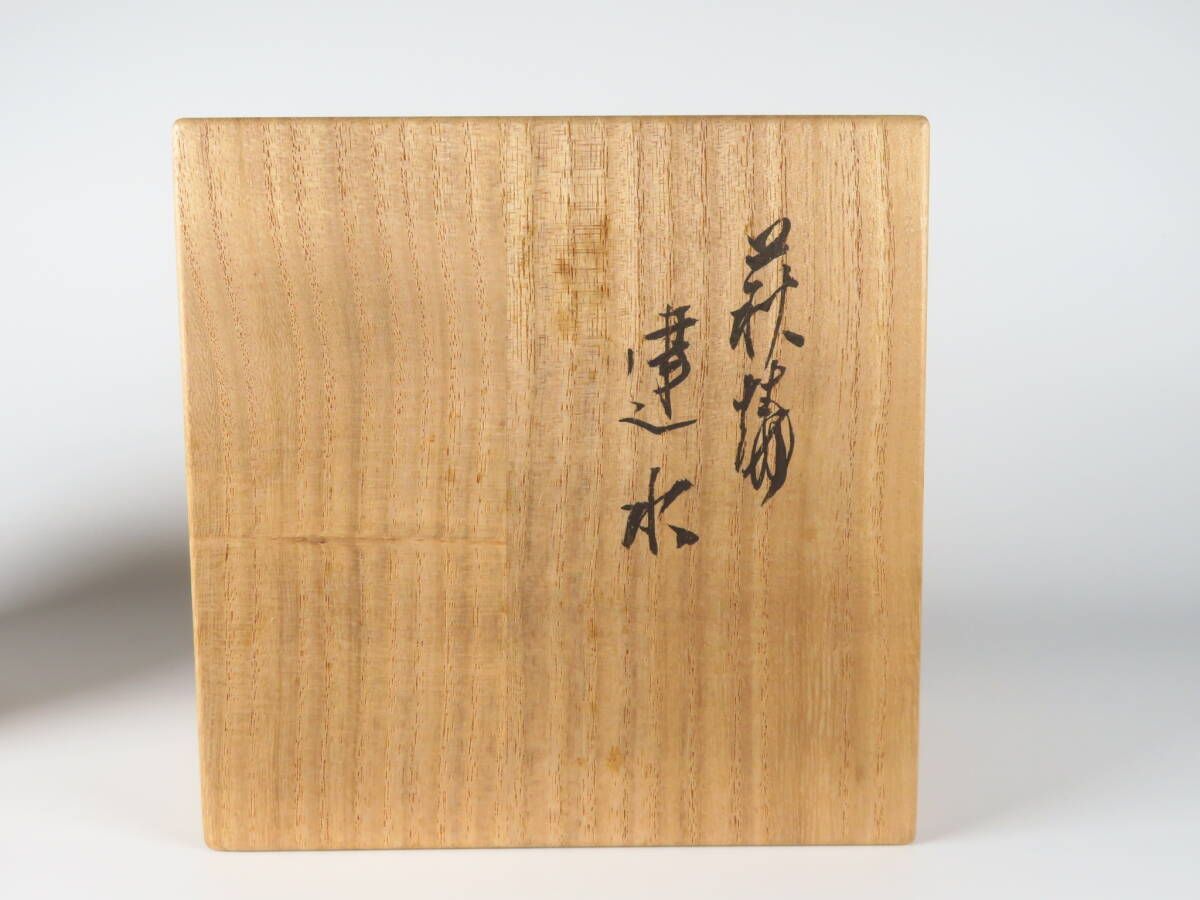 萩焼
建水